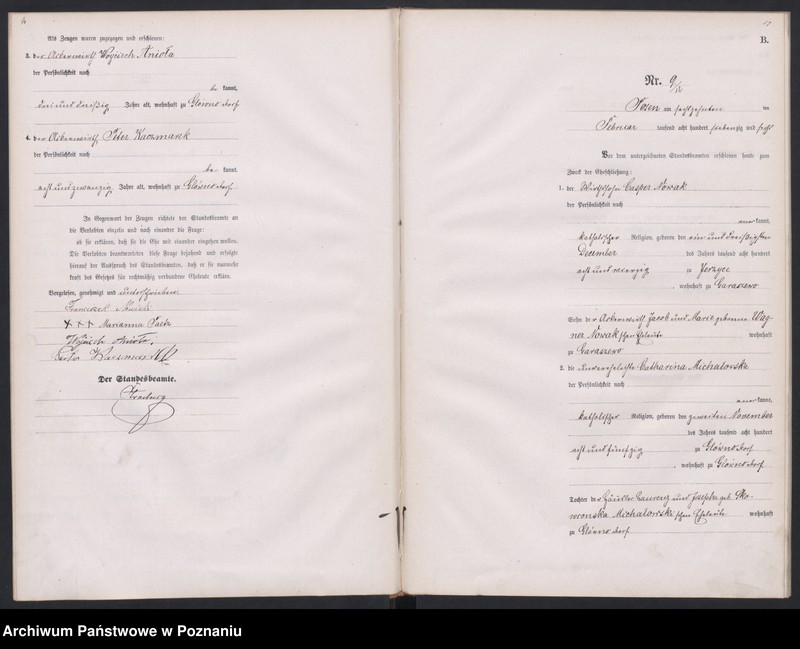 Als Zeugen waren zugegegen und erschienen:
3. der Ackerwirth Woyciech Aniota
der Persönlichkeit nach
be kannt,
drei und dreißig Jahre alt, wohnhaft zu Glowno dorf
4. der Ackerwirth, Peter Kaczmarek
der Persönlichkeit nach
be kannt,
acht und zwanzig Jahre alt, wohnhaft zu Glówno dorf
In Gegenwart der Zeugen richtete der Standesbeamte an
die Verlobten einzeln und nach einander die Frage:
ob sie erklären, daß sie die Ehe mit einander eingehen wollen.
Die Verlobten beantworteten diese Frage bejahend und erfolgte
hierauf der Ausspruch des Standesbeamten, daß er sie nunmehr
kraft des Gesetzes für rechtmäßig verbundene Eheleute erkläre.
Vorgelesen, genehmigt und unterschrieben
+++ Marianna
Der Standesbeamte.
B.
Nr. 9
Posen am sechzehnten ten
Februar tausend acht hundert siebenzig und sechs
Vor dem unterzeichneten Standesbeamten erschienen heute zum
Zweck der Eheschließung:
1. der Wirthssohn Casper Nowak
der Persönlichkeit nach
aner kannt,
katholischer Religion, geboren den ein und dreißigsten
December des Jahres tausend acht hundert
acht und vierzig zu Jerzyce
, wohnhaft zu Garaszewo
Sohn der Ackerwirth Jacob und Marie geborene Wag-
ner Nowak'schen Eheleute wohnhaft
zu Garaszewo
2. die unverehelichte Catharina Michalowska
der Persönlichkeit nach
aner kannt,
katholischer Religion, geboren den zweiten November
des Jahres tausend acht hundert
acht und fünfzig zu Glówno dorf
, wohnhaft zu Glówno dorf
Tochter der Häusler Laurenz und Josepha geb. Sko-
wronska Michalowski'schen Eheleute wohnhaft
zu Glówno dorf
Archiwum Państwowe w Poznaniu